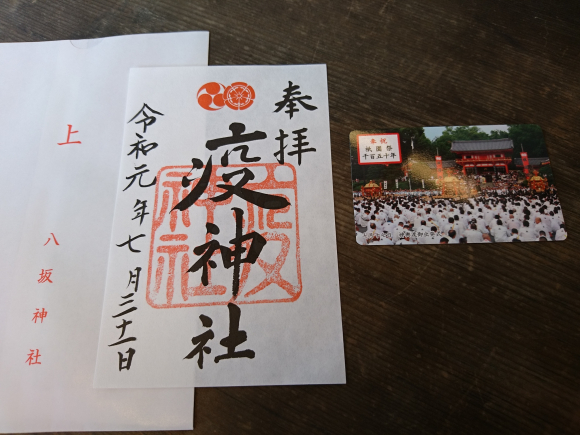 上
八坂神社
奉拝
疫神社
疫神社
令和元年七月三十一日
奉祝
祇園祭
千百五十年